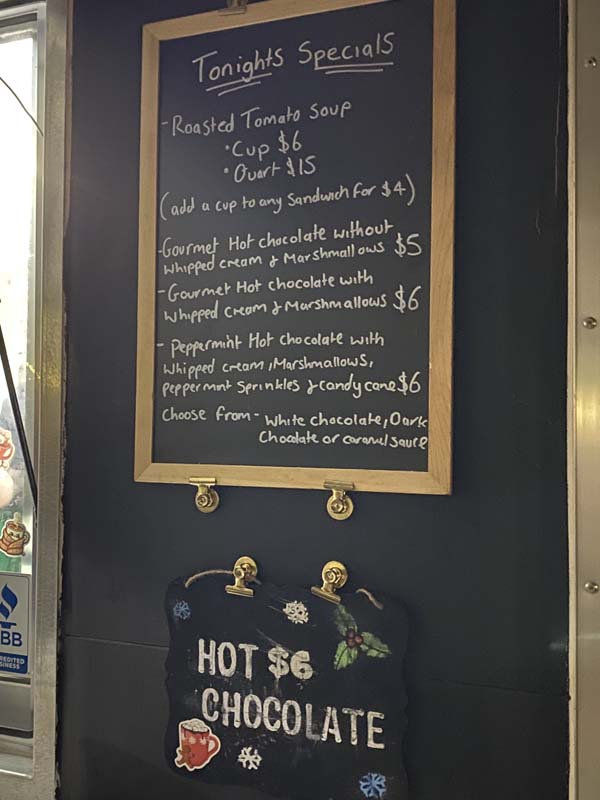 Tonights Specials
- Roasted Tomato Soup
• Cup $6
• Quart $15
(add a cup to any Sandwich for $4)
- Gourmet Hot chocolate without
Whipped cream & Marshmallows $5
- Gourmet Hot chocolate with
Whipped cream & Marshmallows $6
- Peppermint Hot chocolate with
Whipped cream, Marshmallows,
peppermint Sprinkles & candy cane $6
Choose from - White chocolate, Dark
Chocolate or caramel sauce
HOT $6
CHOCOLATE
BB
REDITED
SINESS